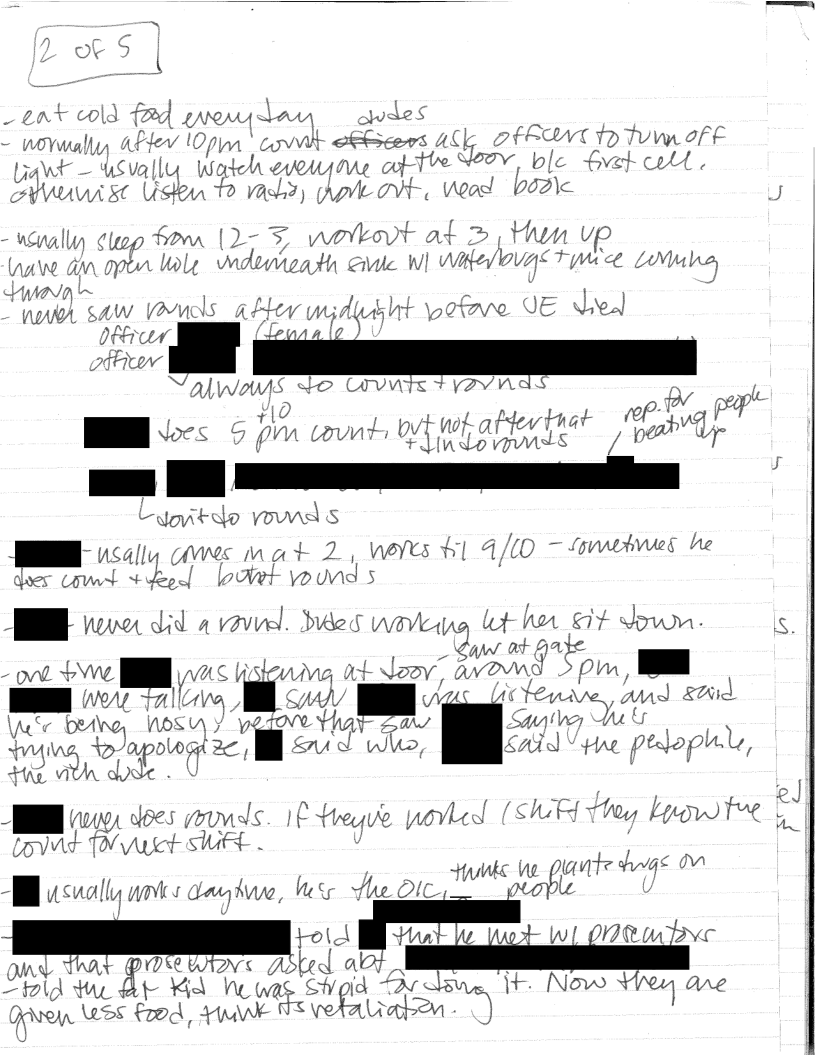 2 OF 5
- eat cold food everyday
- normally after 10pm count officers dudes ask officers to turn off
light - usually watch everyone at the door, b/c first cell.
otherwise listen to radio, work out, read book
- usually sleep from 12-3, workout at 3, then up
- have an open hole underneath sink w/ waterbugs + mice coming
through
- never saw rounds after midnight before JE died
officer (female)
officer
always do counts + rounds
rep. for
beating people
up
+10
does 5 pm count, but not after that
+ didn do rounds
don't do rounds
- usally comes in at 2, works til 9/10 - sometimes he
does count + feed but not rounds
- never did a round. Dudes working let her sit down.
- saw at gate
- one time was listening at door, around 5pm,
were talking, saw was listening, and said
he's being nosy, before that saw saying he's
trying to apologize, said who, said the pedophile,
the rich dude.
- never does rounds. If they've worked 1 shift they know the
count for next shift.
thinks he plants drugs on
people
- usually works daytime, he's the OIC,
- told that he met w/ prosecutors
and that prosecutors asked abt
- told the fat kid he was stupid for doing it. Now they are
given less food, think its retaliation.